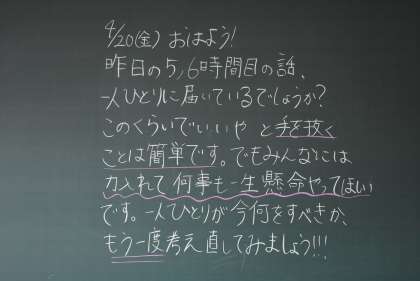 4/20(金) おはよう!
昨日の5,6時間目の話、
一人ひとりに届いているでしょうか?
このくらいでいいや と手を抜く
ことは簡単です。でもみんなには
力入れて 何事も一生懸命やってほしい
です。一人ひとりが今何をすべきか、
もう一度考え直してみましょう!!!